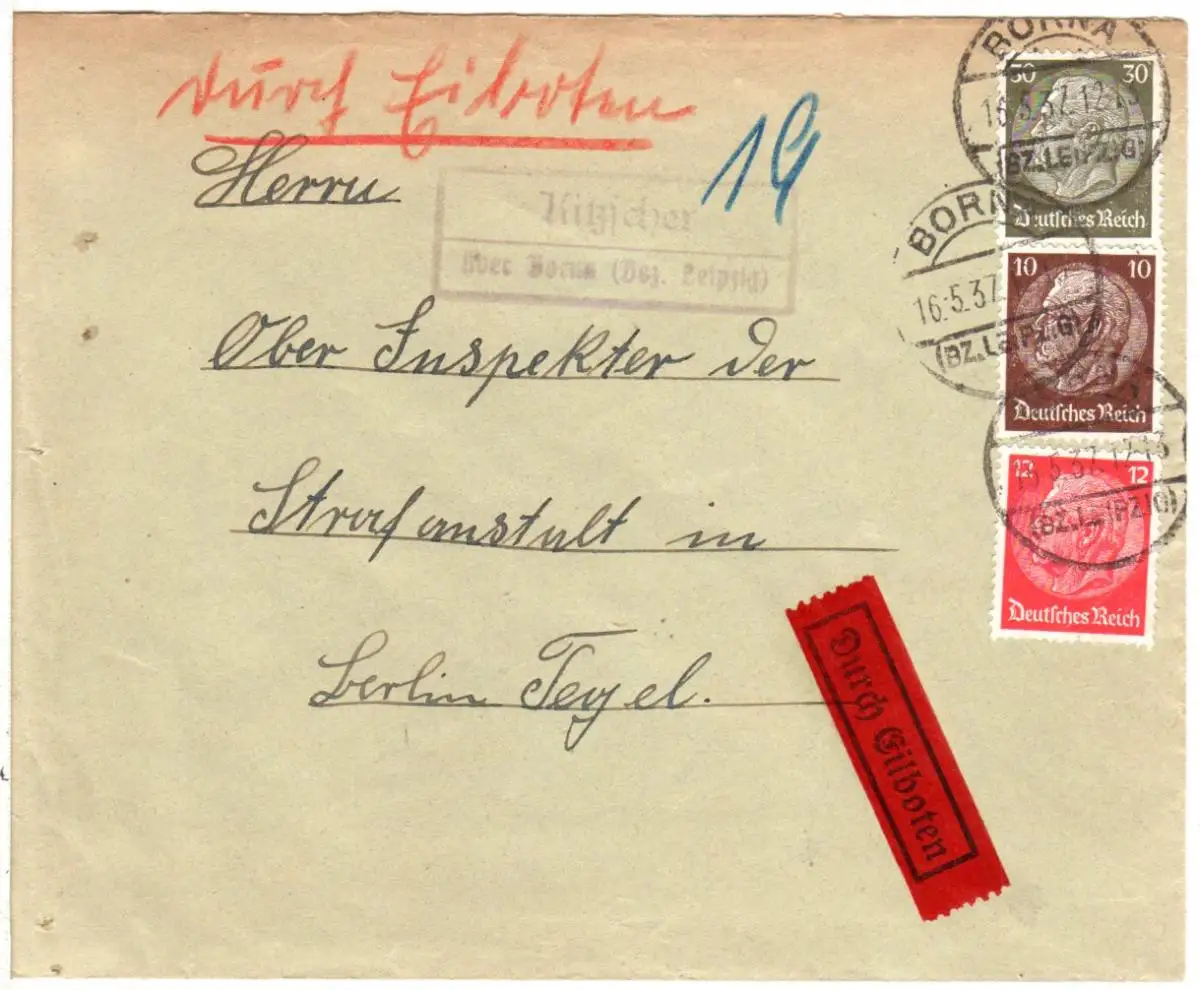 Durch Eilboten
19
Herrn
Kitzscher
über Borna (Bez. Leipzig)
Ober Inspekter der
Strafanstalt in
Berlin Tegel.
Durch Eilboten
BORNA
16.5.37.12-13
(BZ. LEIPZIG)
30 30
Deutsches Reich
BORNA
16.5.37
(BZ. LEIPZIG)
10 10
Deutsches Reich
16.5.37.12-13
(BZ. LEIPZIG)
12 12
Deutsches Reich